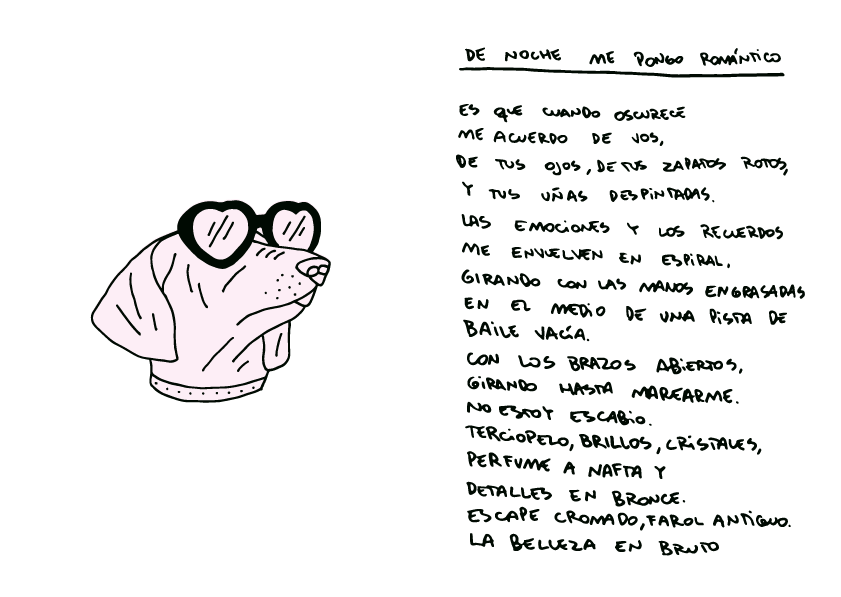 DE NOCHE ME PONGO ROMÁNTICO
ES QUE CUANDO OSCURECE
ME ACUERDO DE VOS,
DE TUS OJOS, DE TUS ZAPATOS ROTOS,
Y TUS UÑAS DESPINTADAS.
LAS EMOCIONES Y LOS RECUERDOS
ME ENVUELVEN EN ESPIRAL,
GIRANDO CON LAS MANOS ENGRASADAS
EN EL MEDIO DE UNA PISTA DE
BAILE VACÍA.
CON LOS BRAZOS ABIERTOS,
GIRANDO HASTA MAREARME.
NO ESTOY ESCABIO.
TERCIOPELO, BRILLOS, CRISTALES,
PERFUME A NAFTA Y
DETALLES EN BRONCE.
ESCAPE CROMADO, FAROL ANTIGUO.
LA BELLEZA EN BRUTO